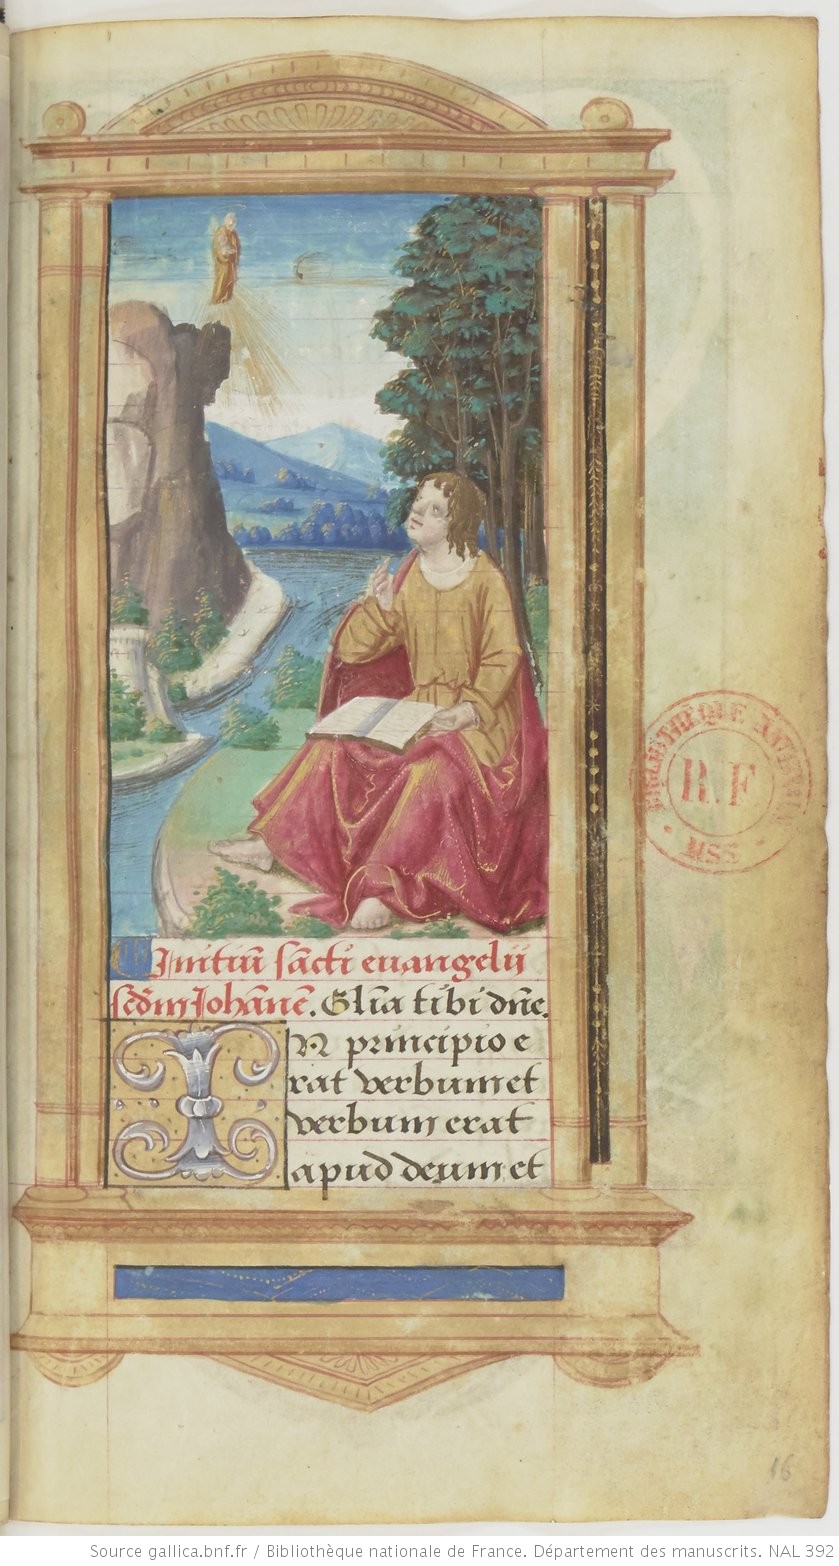 Initiū sācti euangelij
scd̄m Johānē. Glīa tibi dn̄e.
IN principio e
rat verbum et
verbum erat
apud deum et
BIBLIOTHÈQUE NATIONALE
R.F
MSS
16
Source gallica.bnf.fr / Bibliothèque nationale de France. Département des manuscrits. NAL 392